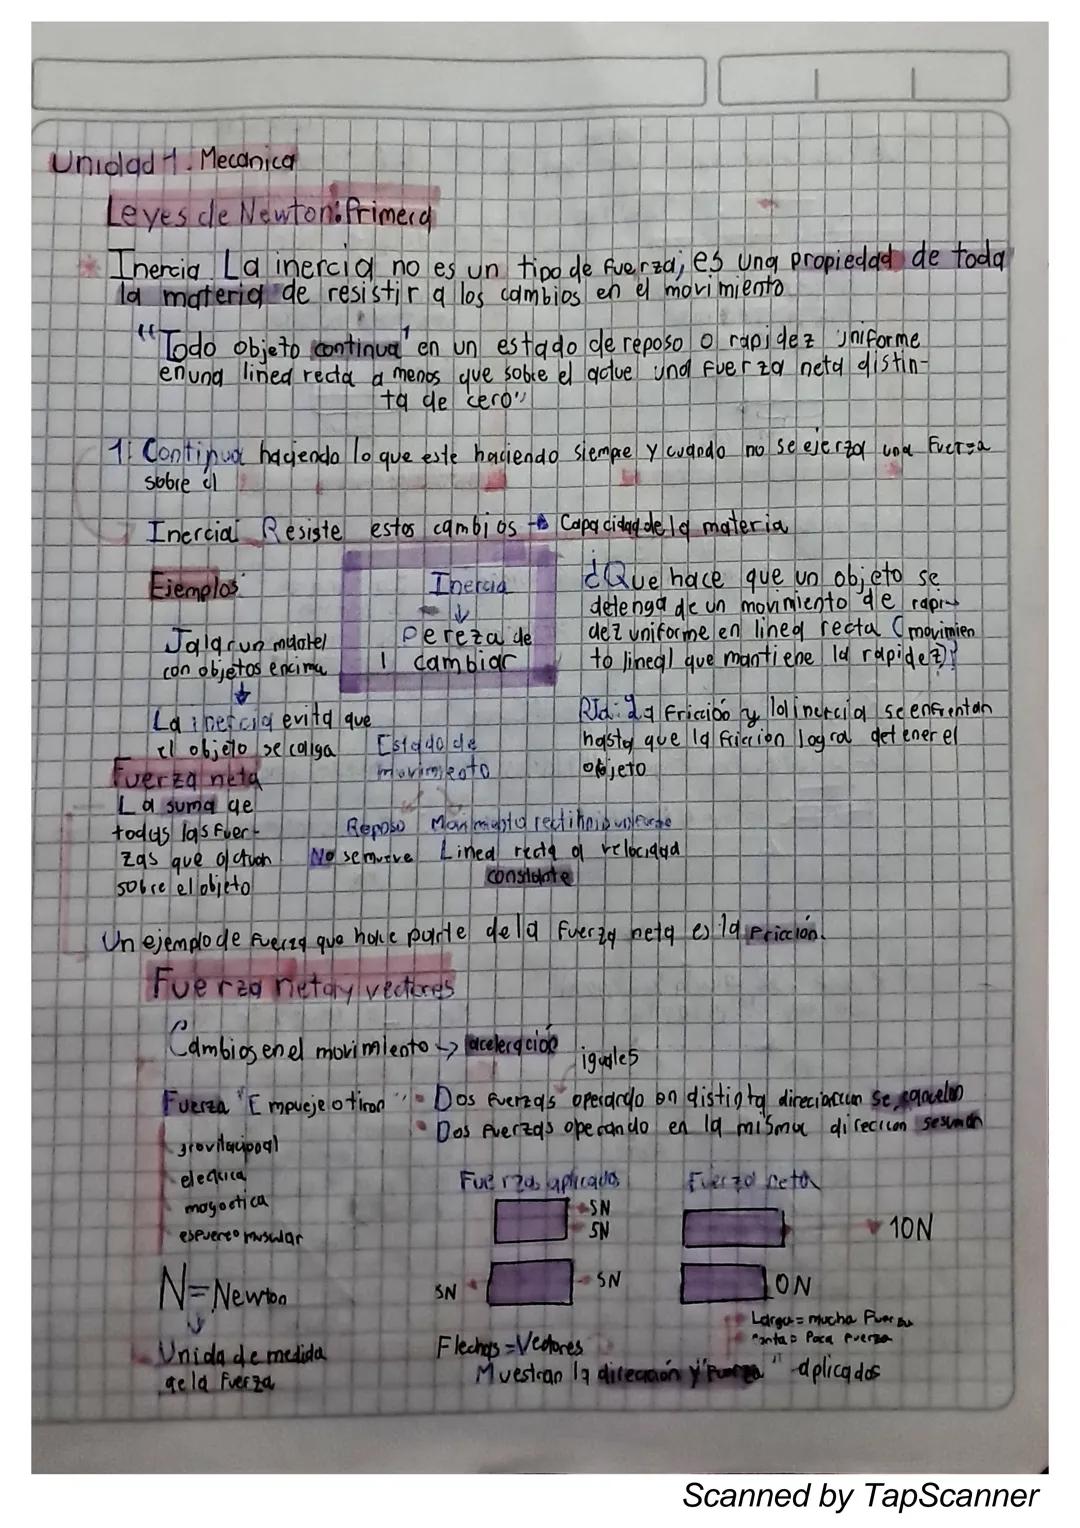 Unidad 1. Mecánica
Leyes de Newton: Primera
* Inercia La inercia no es un tipo de fuerza, es una propiedad de toda
la materia de resistir a los cambios en el movimiento
"Todo objeto continua¹ en un estado de reposo o rapidez uniforme
en una linea recta a menos que sobre el actue una fuerza neta distin-
ta de cero"
1: Continua haciendo lo que este haciendo siempre y cuando no se ejerza una fuerza
sobre el
Inercia: Resiste estos cambios → Capacidad de la materia
Ejemplos:
Jalar un mantel
con objetos encima
↓
La inercia evita que
el objeto se caiga
Inercia
↓
Pereza de
cambiar
¿Que hace que un objeto se
detenga de un movimiento de rapi-
dez uniforme en linea recta (movimien
to lineal que mantiene la rapidez)?
La fricción y la inercia se enfrentan
hasta que la friccion logra detener el
objeto
Fuerza neta
La suma de
todas las fuer-
zas que actuan
sobre el objeto
Estado de
movimiento
Reposo
No se mueve
Movimiento rectilineo uniforme
Linea recta a velocidad
constante
Un ejemplo de fuerza que hace parte de la fuerza neta es la fricción.
Fuerza neta y vectores
Cambios en el movimiento → aceleración
Fuerza "Empuje o tiron"
gravitacional
electrica
magnetica
esfuerzo muscular
N = Newton
↓
Unida de medida
de la fuerza
iguales
• Dos fuerzas operando en distinta direccion se cancelan
• Dos fuerzas operando en la misma direccion se suman
Fuerzas aplicadas
Fuerza neta
5N
5N
10N
5N
5N
0N
Larga = mucha fuerza
Corta = Poca fuerza
Flechas = Vectores
Muestran la dirección y "fuerza" aplicados
Scanned by TapScanner